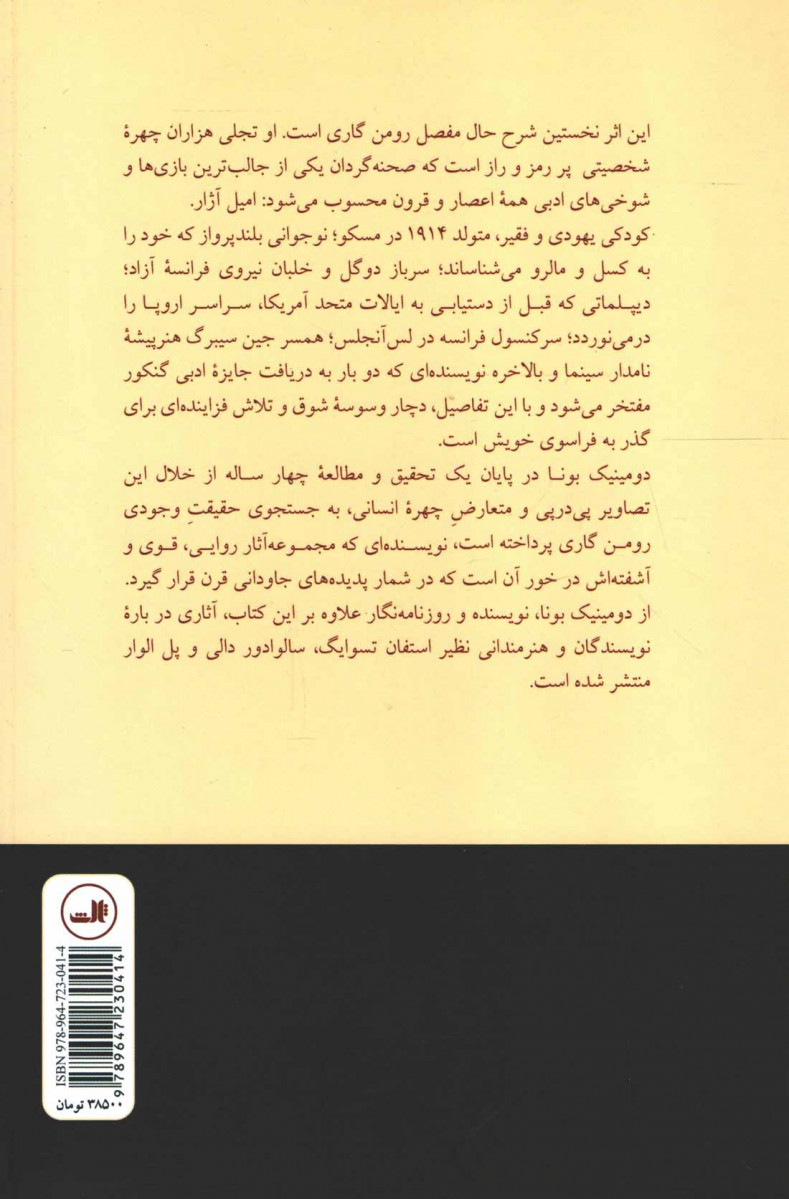 این اثر نخستین شرح حال مفصل رومن گاری است. او تجلی هزاران چهرهٔ
شخصیتی پر رمز و راز است که صحنه‌گردان یکی از جالب‌ترین بازی‌ها و
شوخی‌های ادبی همهٔ اعصار و قرون محسوب می‌شود: امیل آژار.
کودکی یهودی و فقیر، متولد ۱۹۱۴ در مسکو؛ نوجوانی بلندپرواز که خود را
به کسل و مالرو می‌شناساند؛ سرباز دوگل و خلبان نیروی فرانسهٔ آزاد؛
دیپلماتی که قبل از دستیابی به ایالات متحد آمریکا، سراسر اروپا را
درمی‌نوردد؛ سرکنسول فرانسه در لس‌آنجلس؛ همسر جین سیبرگ هنرپیشهٔ
نامدار سینما و بالاخره نویسنده‌ای که دو بار به دریافت جایزهٔ ادبی گنکور
مفتخر می‌شود و با این تفاصیل، دچار وسوسهٔ شوق و تلاش فزاینده‌ای برای
گذر به فراسوی خویش است.
دومینیک بونا در پایان یک تحقیق و مطالعهٔ چهار ساله از خلال این
تصاویر پی‌درپی و متعارضِ چهرهٔ انسانی، به جستجوی حقیقتِ وجودی
رومن گاری پرداخته است، نویسنده‌ای که مجموعه‌آثار روایی، قوی و
آشفته‌اش در خور آن است که در شمار پدیده‌های جاودانی قرن قرار گیرد.
از دومینیک بونا، نویسنده و روزنامه‌نگار علاوه بر این کتاب، آثاری در بارهٔ
نویسندگان و هنرمندانی نظیر استفان تسوایگ، سالوادور دالی و پل الوار
منتشر شده است.
ثالث
ISBN 978-964-723-041-4
9 789647 230414
۳۸۵۰۰ تومان